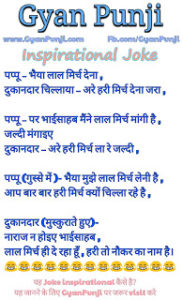 Gyan Punji
www.GyanPunji.com Fb.com/GyanPunji
Inspirational Joke
पप्पू – भैया लाल मिर्च देना ,
दुकानदार चिल्लाया – अरे हरी मिर्च देना जरा ,
पप्पू – पर भाईसाहब मैंने लाल मिर्च मांगी है ,
जल्दी मंगाइए
दुकानदार – अरे हरी मिर्च ला रे जल्दी ,
पप्पू (गुस्से में )- भैया मुझे लाल मिर्च लेनी है ,
आप बार बार हरी मिर्च क्यों चिल्ला रहे है ,
दुकानदार (मुस्कुराते हुए)-
नाराज न होइए भाईसाहब ,
लाल मिर्च ही दे रहा हूँ , हरी तो नौकर का नाम है।
यह Joke Inspirational कैसे है?
यह जानने के लिए GyanPunji पर जरूर visit करे